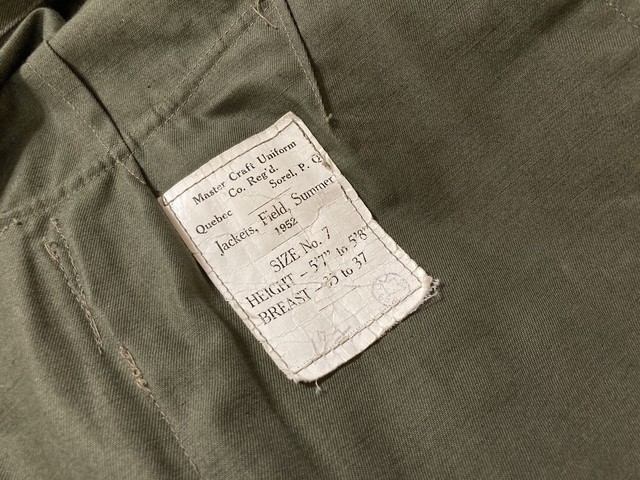 Master Craft Uniform
Co. Reg'd.
Quebec Sorel, P. Q
Jackets, Field, Summer
1952
SIZE No. 7
HEIGHT - 5'7" to 5'8"
BREAST - 35 to 37